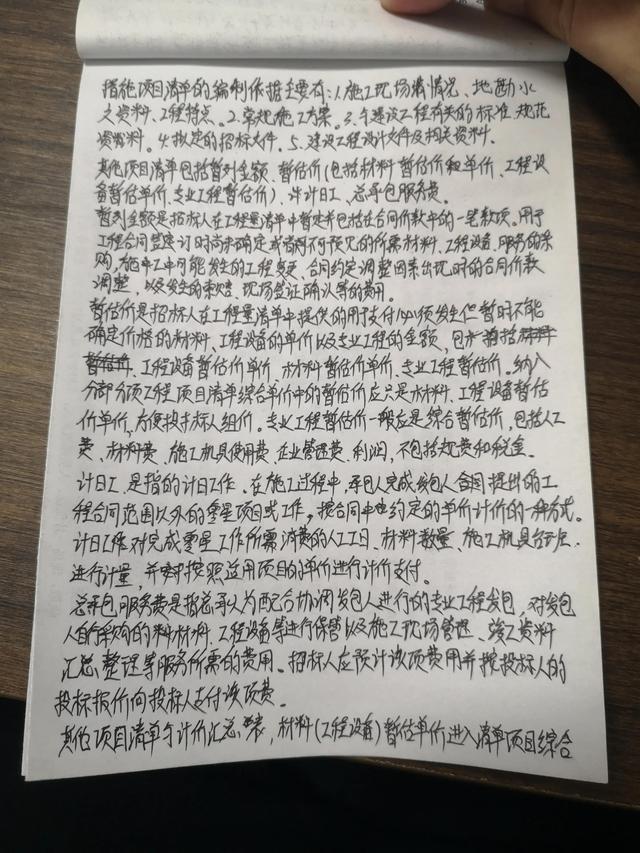 措施项目清单的编制依据主要有：1.施工现场情况、地勘水
文资料、工程特点。2.常规施工方案。3.与建设工程有关的标准、规范
资料。4.拟定的招标文件。5.建设工程设计文件及相关资料。
其他项目清单包括暂列金额、暂估价(包括材料暂估价和单价、工程设
备暂估单价、专业工程暂估价)、计日工、总承包服务费。
暂列金额是招标人在工程量清单中暂定并包括在合同价款中的一笔款项。用于
工程合同签定时尚未确定或者不可预见的所需材料、工程设备、服务的采
购,施工中可能发生的工程变更、合同约定调整因素出现时的合同价款
调整、以及发生的索赔、现场签证确认等的费用。
暂估价是招标人在工程量清单中提供的用于支付必须发生但暂时不能
确定价格的材料、工程设备的单价以及专业工程的金额,包括
、工程设备暂估价单价、材料暂估价单价、专业工程暂估价。纳入
分部分项工程项目清单综合单价中的暂估价应只是材料、工程设备暂估
价单价,方便投标人组价。专业工程暂估价一般应是综合暂估价,包括人工
费、材料费、施工机具使用费、企业管理费、利润,不包括规费和税金。
计日工、是指的计日工作、在施工过程中,承包人完成发包人合同提出的工
程合同范围以外的零星项目或工作。按合同中约定的单价计价的一种方式。
计日工作对完成零星工作所需消费的人工工日、材料数量、施工机具台班、
进行计量,并按照适用项目的单价进行计价支付。
总承包服务费是指总承人为配合协调发包人进行的专业工程发包,对发包
人自行采购的材料、工程设备等进行保管以及施工现场管理、竣工资料
汇总整理等服务所需的费用。招标人应预计该项费用并按投标人的
投标报价向投标人支付该项费。
其他项目清单与计价汇总表,材料(工程设备)暂估单价进入清单项目综合